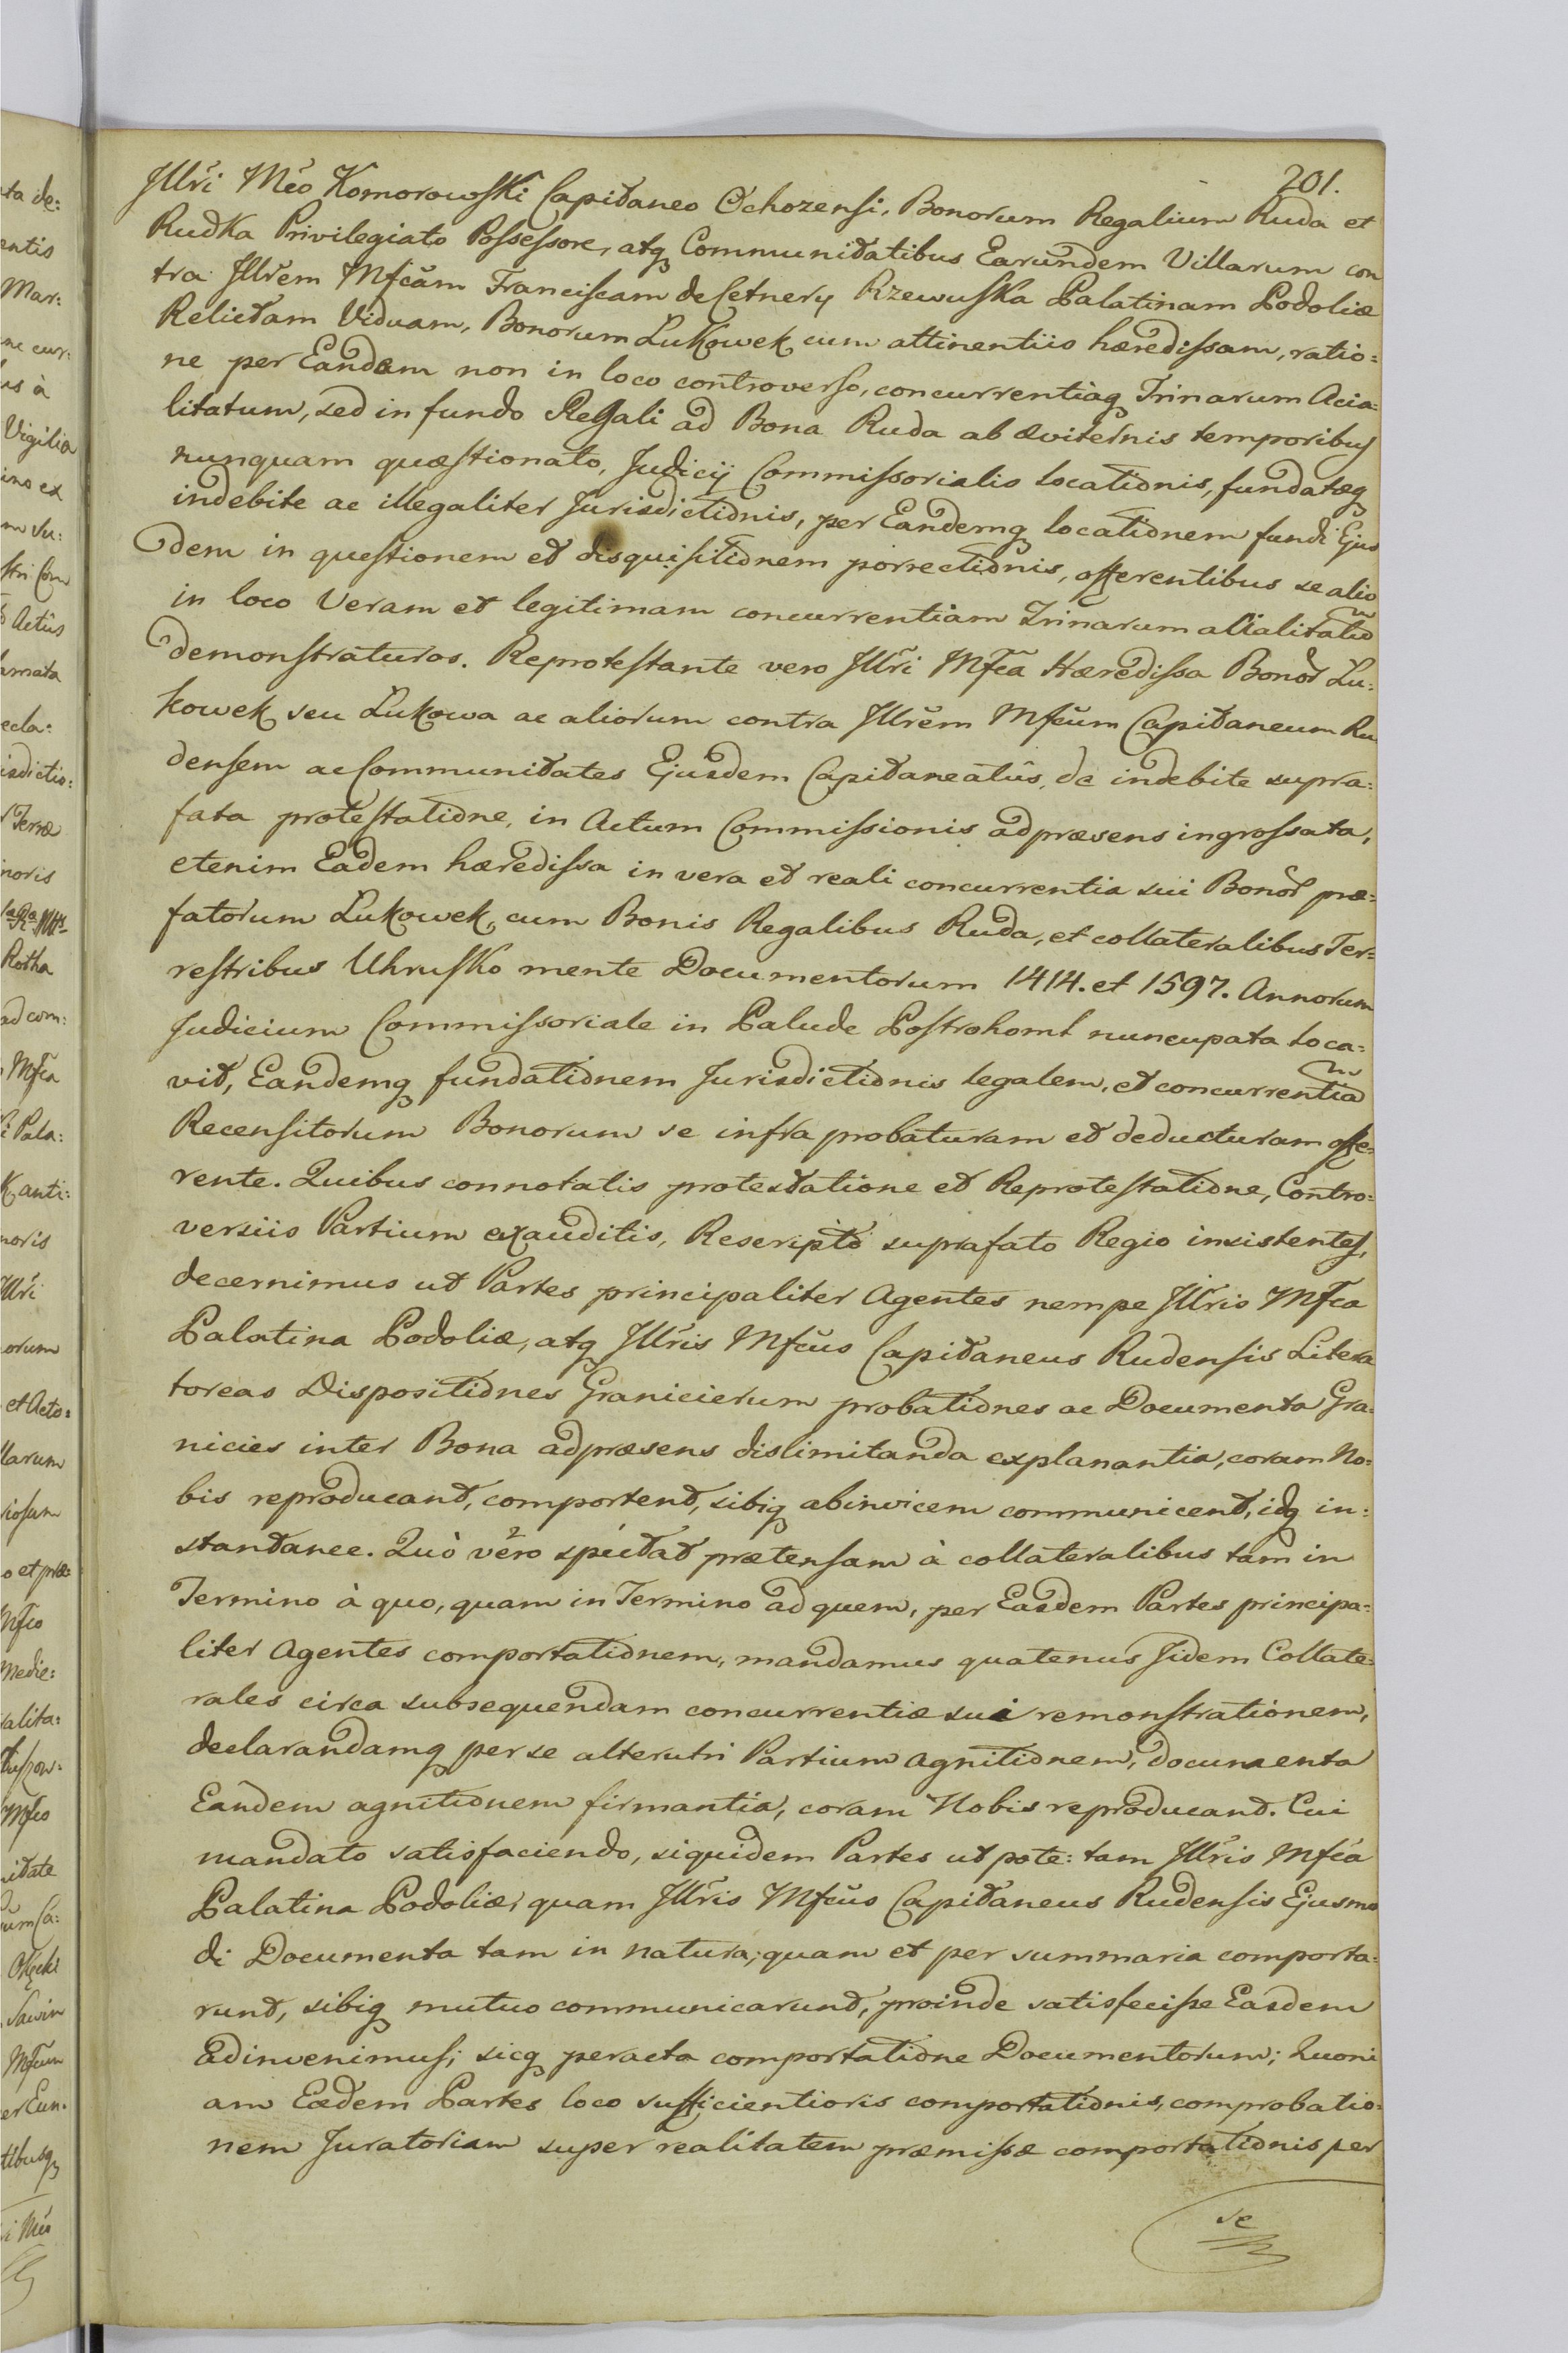 201.
Jllri Mco Komorowski Capitaneo Ochozensi, Bonorum Regalium Ruda et
Rudka Privilegiato Possessore, atq Communitatibus Earundem Villarum con
tra Jllrem Mfcam Franciscam de Cetnery Rzewuska Palatinam Podoliæ
Relictam Viduam, Bonorum Lukowek cum attinentiis hæredissam, ratio=
ne per Eandem non in loco controverso, concurrentiaq Trinarum Acia=
litatum, sed in fundo Regali ad Bona Ruda ab æviternis temporibus
nunquam quæstionato, Judicij Commissorialis locationis, fundatæq
indebite ac illegaliter Jurisdictionis, per Eandemq locationem fundi Ejus
dem in questionem et disquisitionem porrectionis, offerentibus se alio
in loco Veram et legitimam concurrentiam Trinarum acialitatum
demonstraturos. Reprotestante vero Jllri Mfca Hæredissa Bonor Lu=
kowek seu Lukowa ac aliorum contra Jllrem Mfcum Capitaneum Ru
densem ac Communitates Ejusdem Capitaneatus, de indebite supra=
fata protestatione, in Actum Commissionis adpræsens ingrossata,
etenim Eadem hæredissa in vera et reali concurrentia sui Bonor præ=
fatorum Lukowek, cum Bonis Regalibus Ruda, et collateralibus Ter=
restribus Uhrusko mente Documentorum 1414. et 1597. Annorum
Judicium Commissoriale in Palude Postrohoml nuncupata loca=
vit, Eandemq fundationem Jurisdictionis legalem, et concurrentiam
Recensitorum Bonorum se infra probaturam et deducturam offe=
rente. Quibus connotatis protestatione et Reprotestatione, Contro=
versiis Partium exauditis, Rescripto suprafato Regio insistentes,
decernimus ut Partes principaliter Agentes nempe Jllris Mfca
Palatina Podoliæ, atq Jllris Mfcus Capitaneus Rudensis Litera
toreas Dispositiones Granicierum probationes ac Documenta Gra=
nicies inter Bona adpræsens dislimitanda explanantia, coram No=
bis reproducant, comportent, sibiq abinvicem communicent, idq in=
stantanee. Quò vero spectat prætensam à collateralibus tam in
Termino à quo, quam in Termino ad quem, per Easdem Partes principa=
liter Agentes comportationem, mandamus quatenus Jidem Collate=
rales circa subsequendam concurrentiæ sui remonstrationem,
declarandamq per se alterutri Partium agnitionem, documenta
Eandem agnitionem firmantia, coram Nobis reproducant. Cui
mandato satisfaciendo, siquidem Partes ut pote: tam Jllris Mfca
Palatina Podoliæ, quam Jllris Mfcus Capitaneus Rudensis Ejusmo
di Documenta tam in natura, quam et per summaria comporta=
runt, sibiq mutuo communicarunt, proinde satisfecisse Easdem
adinvenimus; sicq peracta comportatione Documentorum; Quoni
am Eædem Partes loco sufficientioris comportationis, comprobatio=
nem Juratoriam super realitatem præmissæ comportationis per
se